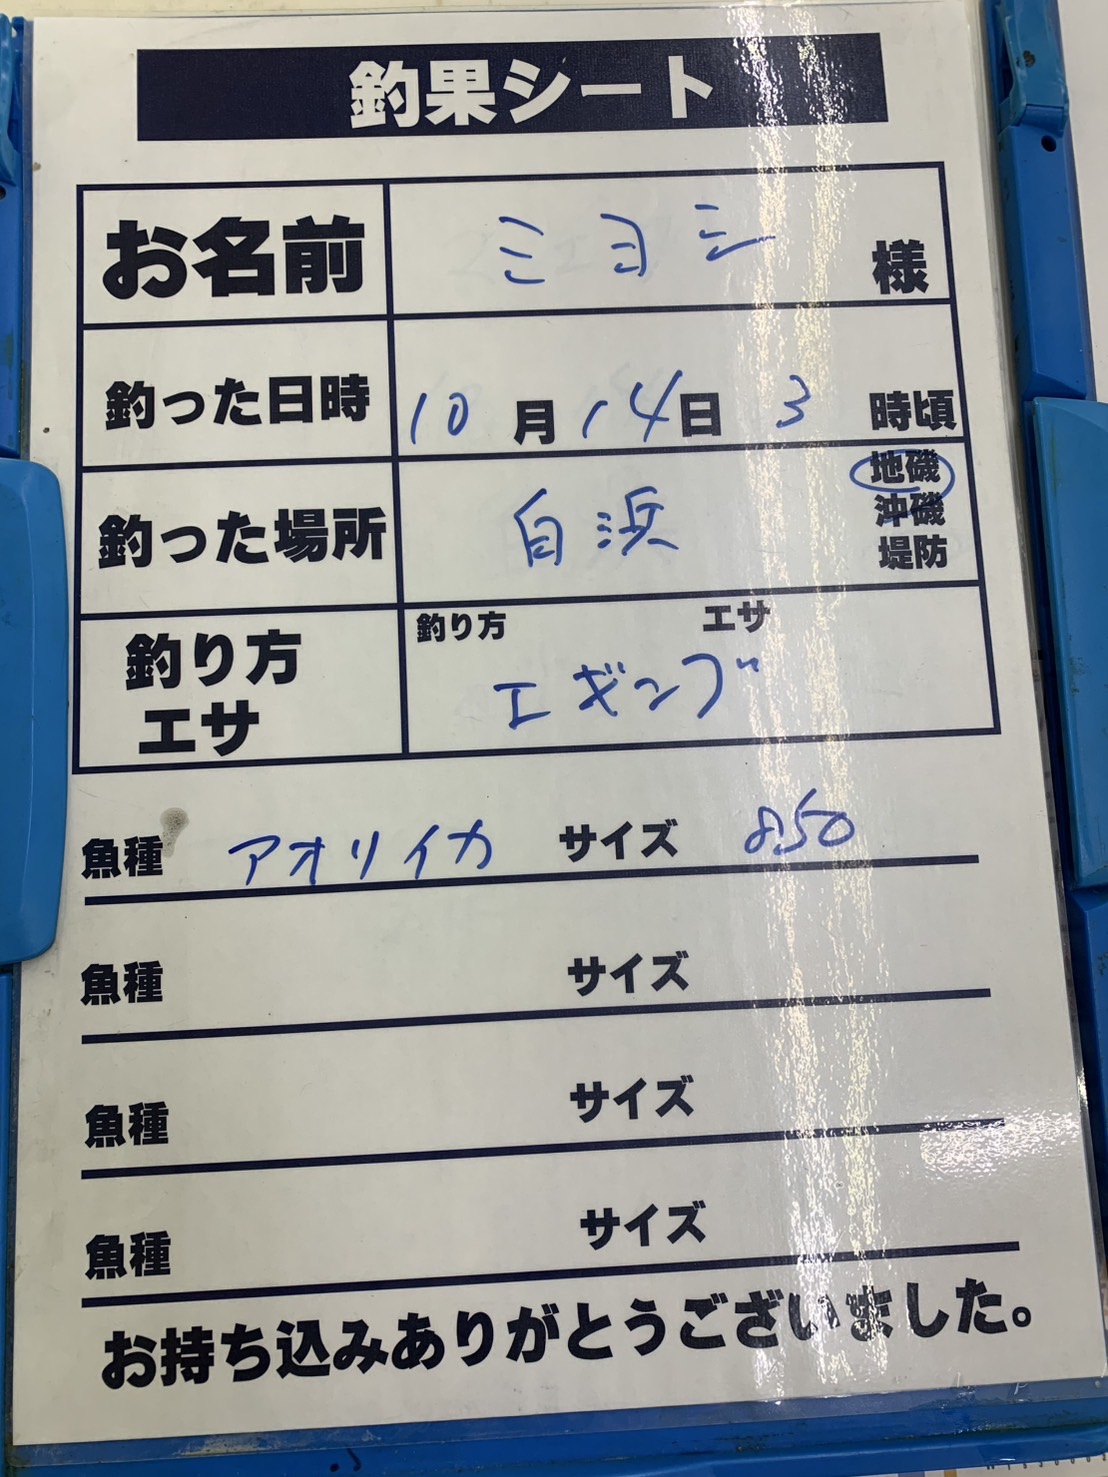 釣果シート
お名前 ミヨシ 様
釣った日時 10月14日 3 時頃
釣った場所 白浜 地磯
沖磯
堤防
釣り方 エサ
釣り方
エサ
エギング
魚種 アオリイカ サイズ 850
魚種 サイズ
魚種 サイズ
魚種 サイズ
お持ち込みありがとうございました。